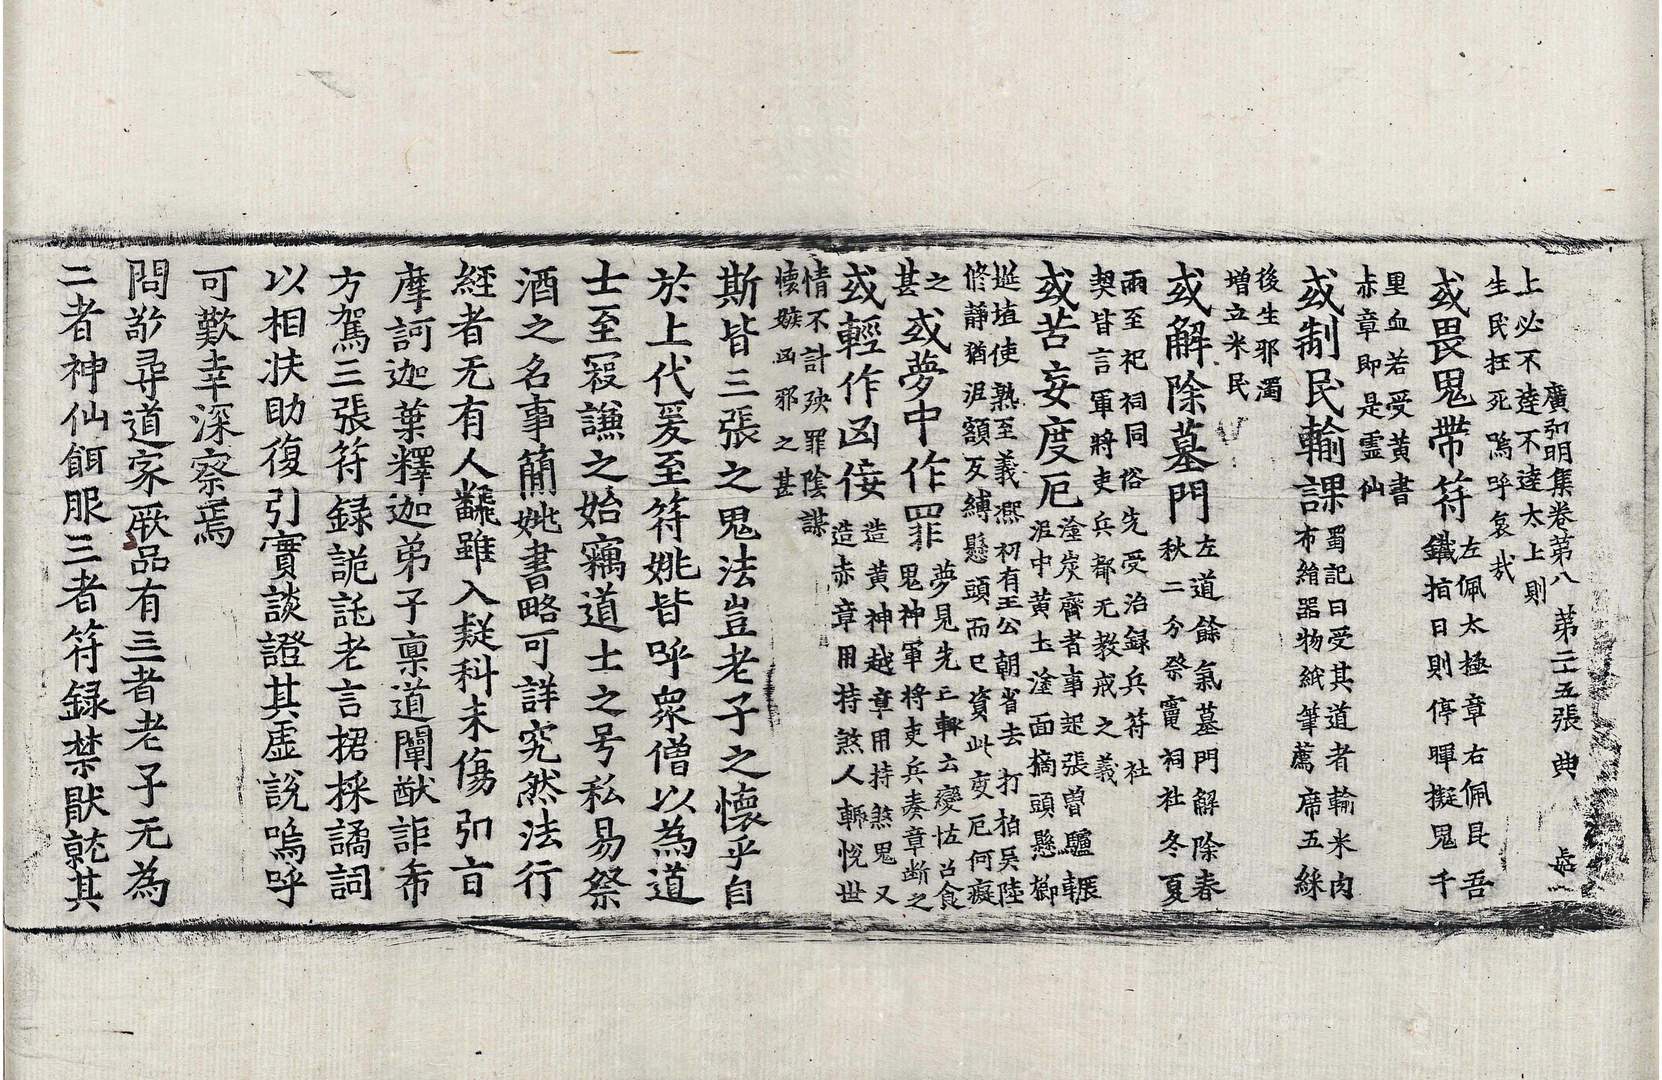 上必不逹不逹太上則
生民枉死嗚呼哀㦲
廣弘明集卷第八　第二十五張　典
或畏鬼帶符左佩太極章右佩昆吾
鐵指日則停暉擬鬼千
里血若受黄書
赤章即是霊仙
或制民輸課蜀記曰受其道者輸米肉
布絹器物紙筆薦席五綵
後生邪濁
增立米民
或解除墓門左道餘氣墓門解除春
秋二分祭竈祠社冬夏
兩至祀祠同俗先受治録兵符社
契皆言軍將吏兵都无教戒之義
或苦妄度厄塗炭齋者事起張魯驢輾
泥中黄土塗面摘頭懸櫛
埏埴使熟至義熈初有王公朝省去打拍吴陸
修静猶泥額反縛懸頭而已資此度厄何癡
之
甚或夢中作罪夢見先亡輒云變怪召食
鬼神軍將吏兵奏章断之
或輕作凶佞造黄神越章用持煞鬼又
造赤章用持煞人輒悅世
情不計殃罪陰謀
懐嫉凶邪之甚
斯皆三張之鬼法豈老子之懐乎自
於上代爰至符姚皆呼衆僧以為道
士至寇謙之始竊道士之号私易祭
酒之名事簡姚書略可詳究然法行
經者无有人飜雖入疑科未傷弘旨
摩訶迦葉釋迦弟子稟道闡猷詐希
方駕三張符録詭託老言捃採譎詞
以相扶助復引實談證其虚說嗚呼
可歎幸深察焉
問敬尋道家厥品有三一者老子无為
二者神仙餌服三者符録禁猒就其